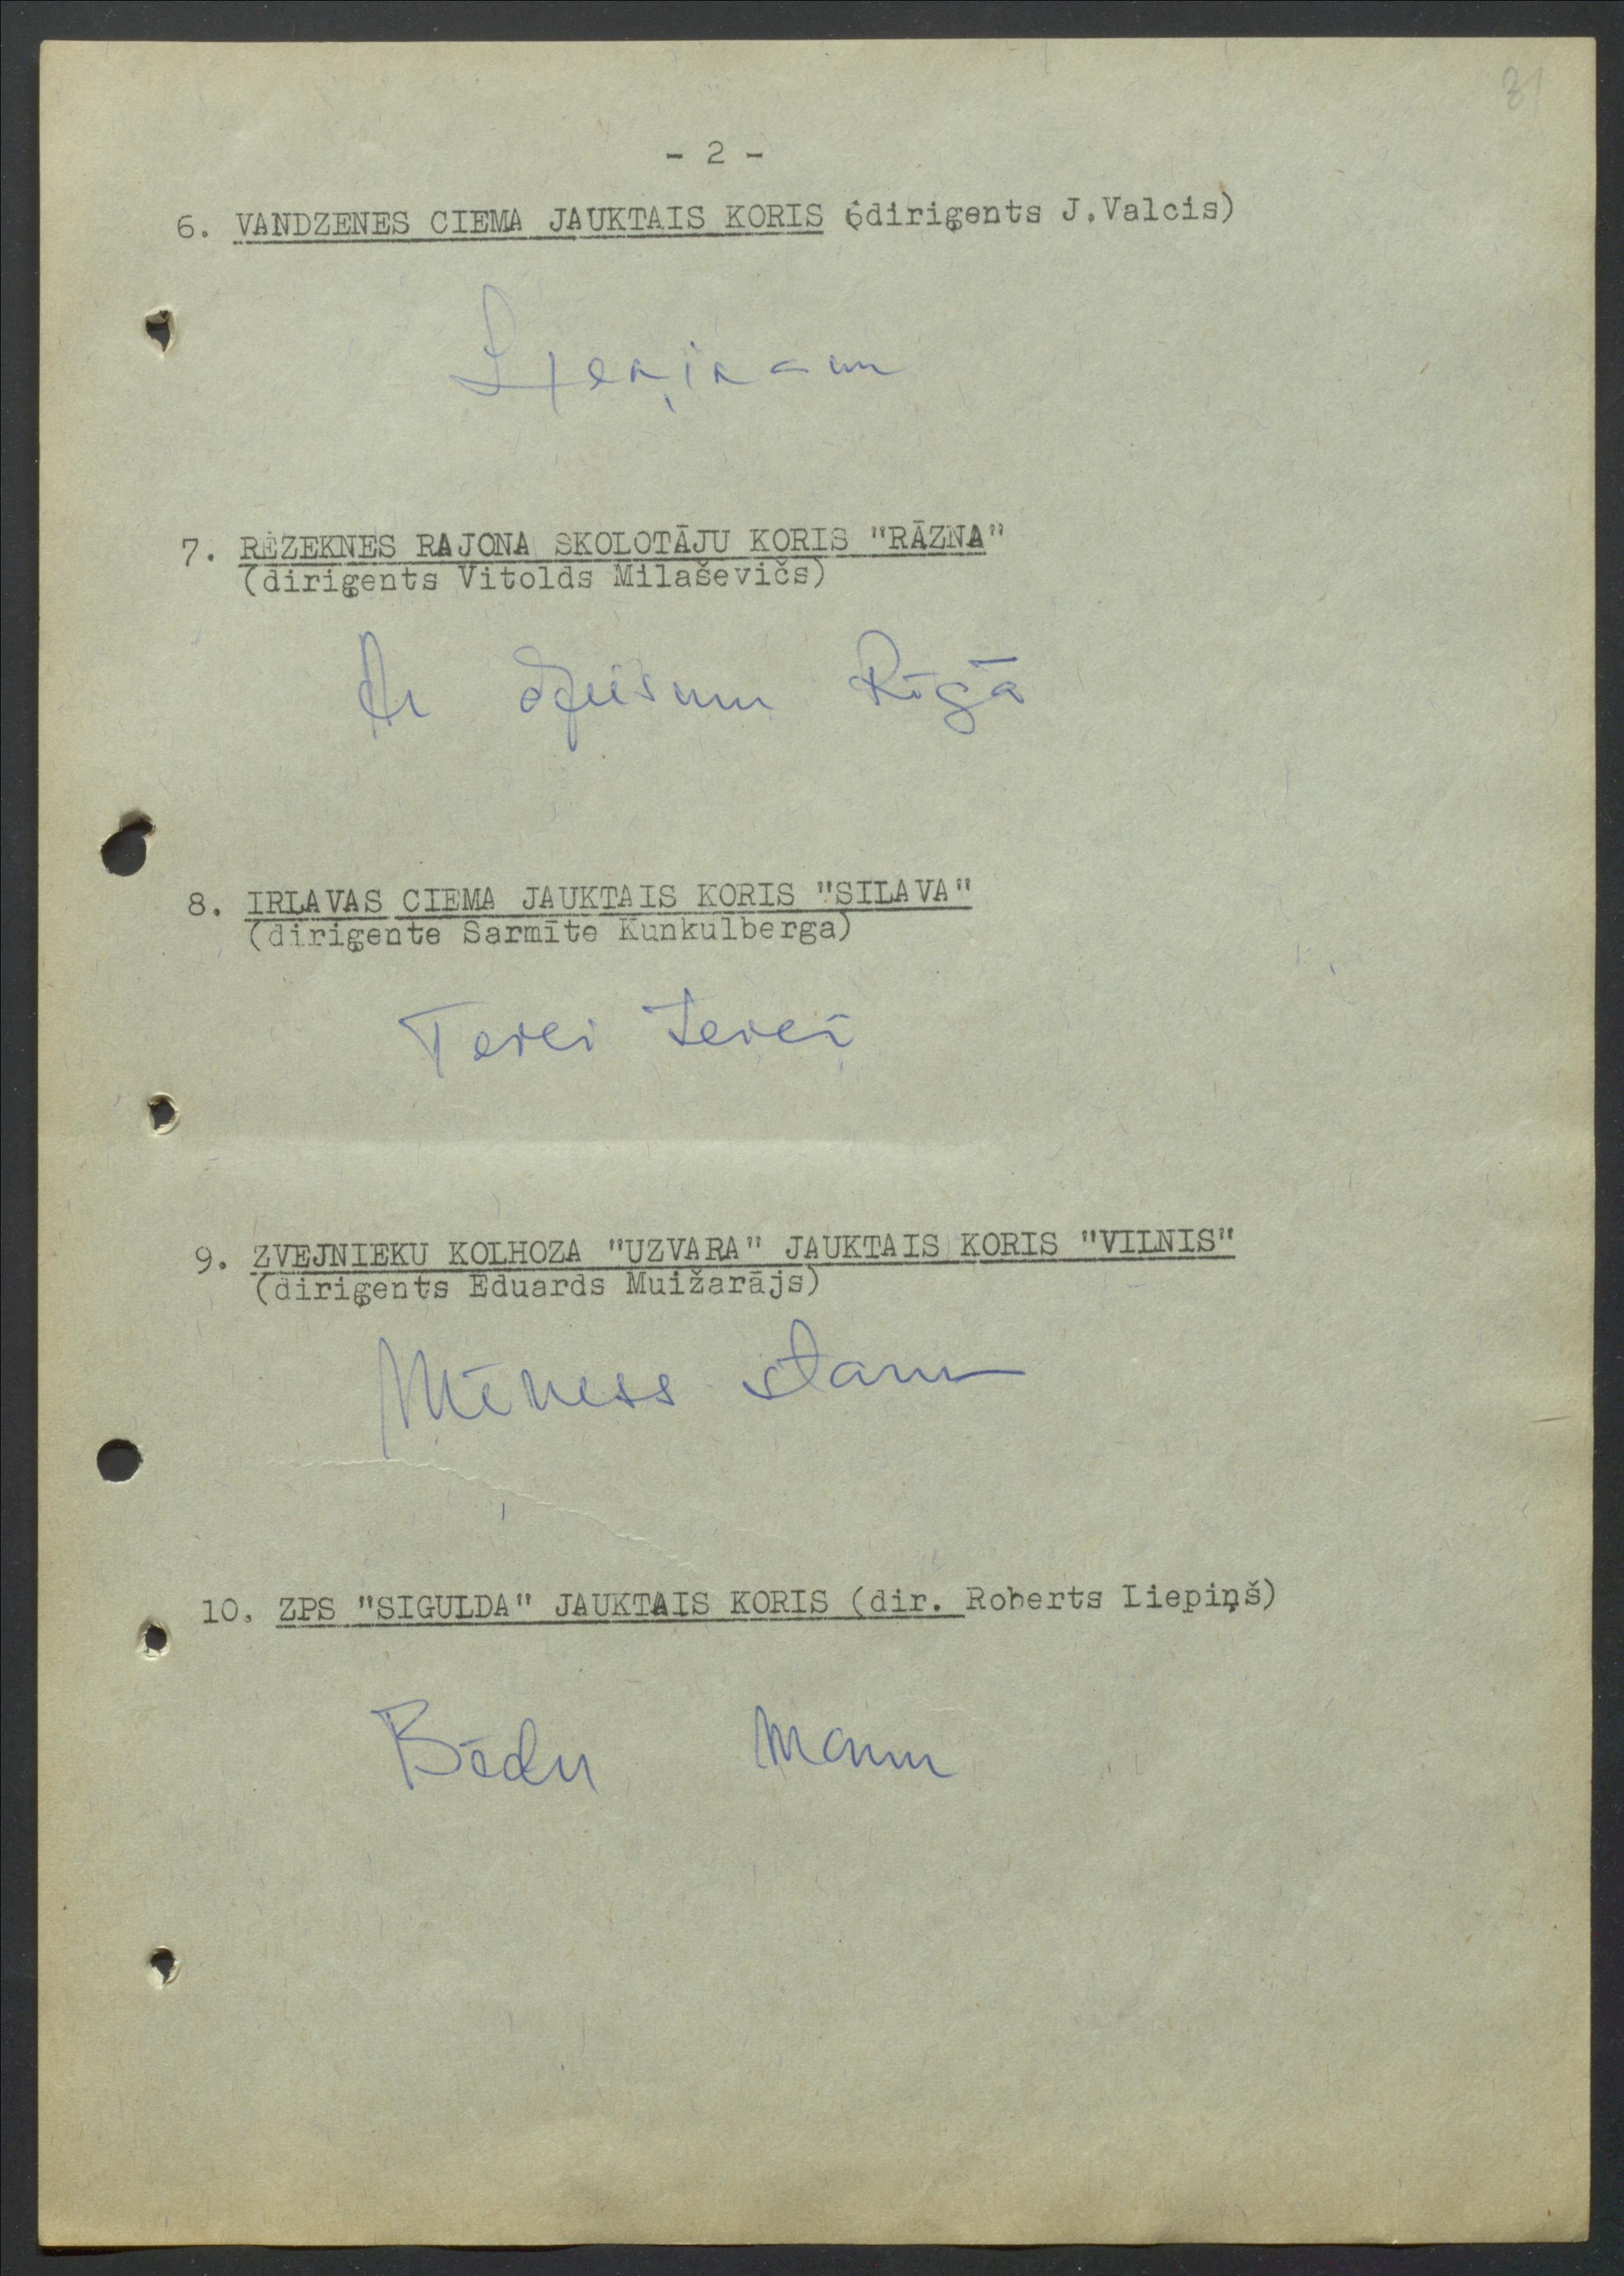 31
- 2 -
6. VANDZENES CIEMA JAUKTAIS KORIS (diriģents J.Valcis)
Ļeņinam
7. RĒZEKNES RAJONA SKOLOTĀJU KORIS "RĀZNA"
(diriģents Vitolds Milaševičs)
Ar dziesmu Rīgā
8. IRLAVAS CIEMA JAUKTAIS KORIS "SILAVA"
(diriģente Sarmīte Kunkulberga)
Tevei
9. ZVEJNIEKU KOLHOZA "UZVARA" JAUKTAIS KORIS "VILNIS"
(diriģents Eduards Muižarājs)
Mēness
10. ZPS "SIGULDA" JAUKTAIS KORIS (dir. Roberts Liepiņš)
Bēdu manu